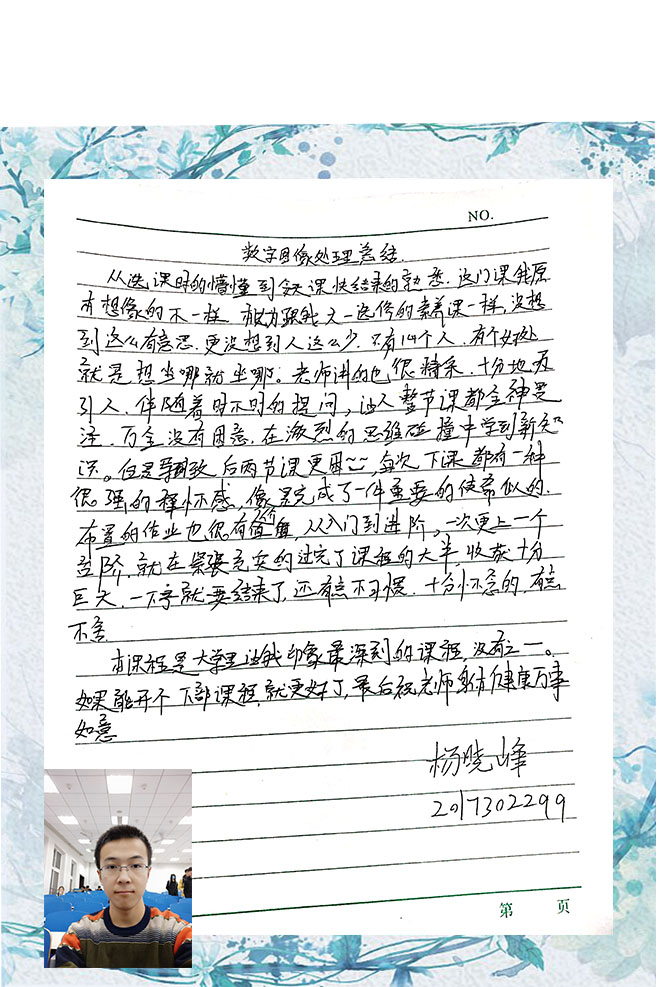 NO.
数字图像处理总结.
从选课时的懵懂到今天课快结束的熟悉. 这门课我原
本想像的不一样. 本以为跟我之前选修的素养课一样, 没想
到这么有意思. 更没想到人这么少. 只有14个人. 有个好处
就是想坐哪就坐哪. 老师讲的也很精采. 十分地
引人. 伴随着时不时的提问, 让人整节课都全神贯
注. 万全没有困意. 在激烈的思维碰撞中学到新知
识. 但是导致后两节课更困~~, 每次下课都有一种
很强的释怀感, 像是完成了一件重要的使命似的.
布置的作业也很有价值, 从入门到进阶, 一次更上一个
台阶. 就在紧张充实的过完了课程的大半, 收获十分
巨大. 一下子就要结束了, 还有点不习惯. 十分怀念的. 有点
不舍
本课程是大学里让我印象最深刻的课程, 没有之一。
如果能开个下部课程, 就更好了, 最后祝老师身体健康万事
如意
杨晓峰
2017302299
第 页